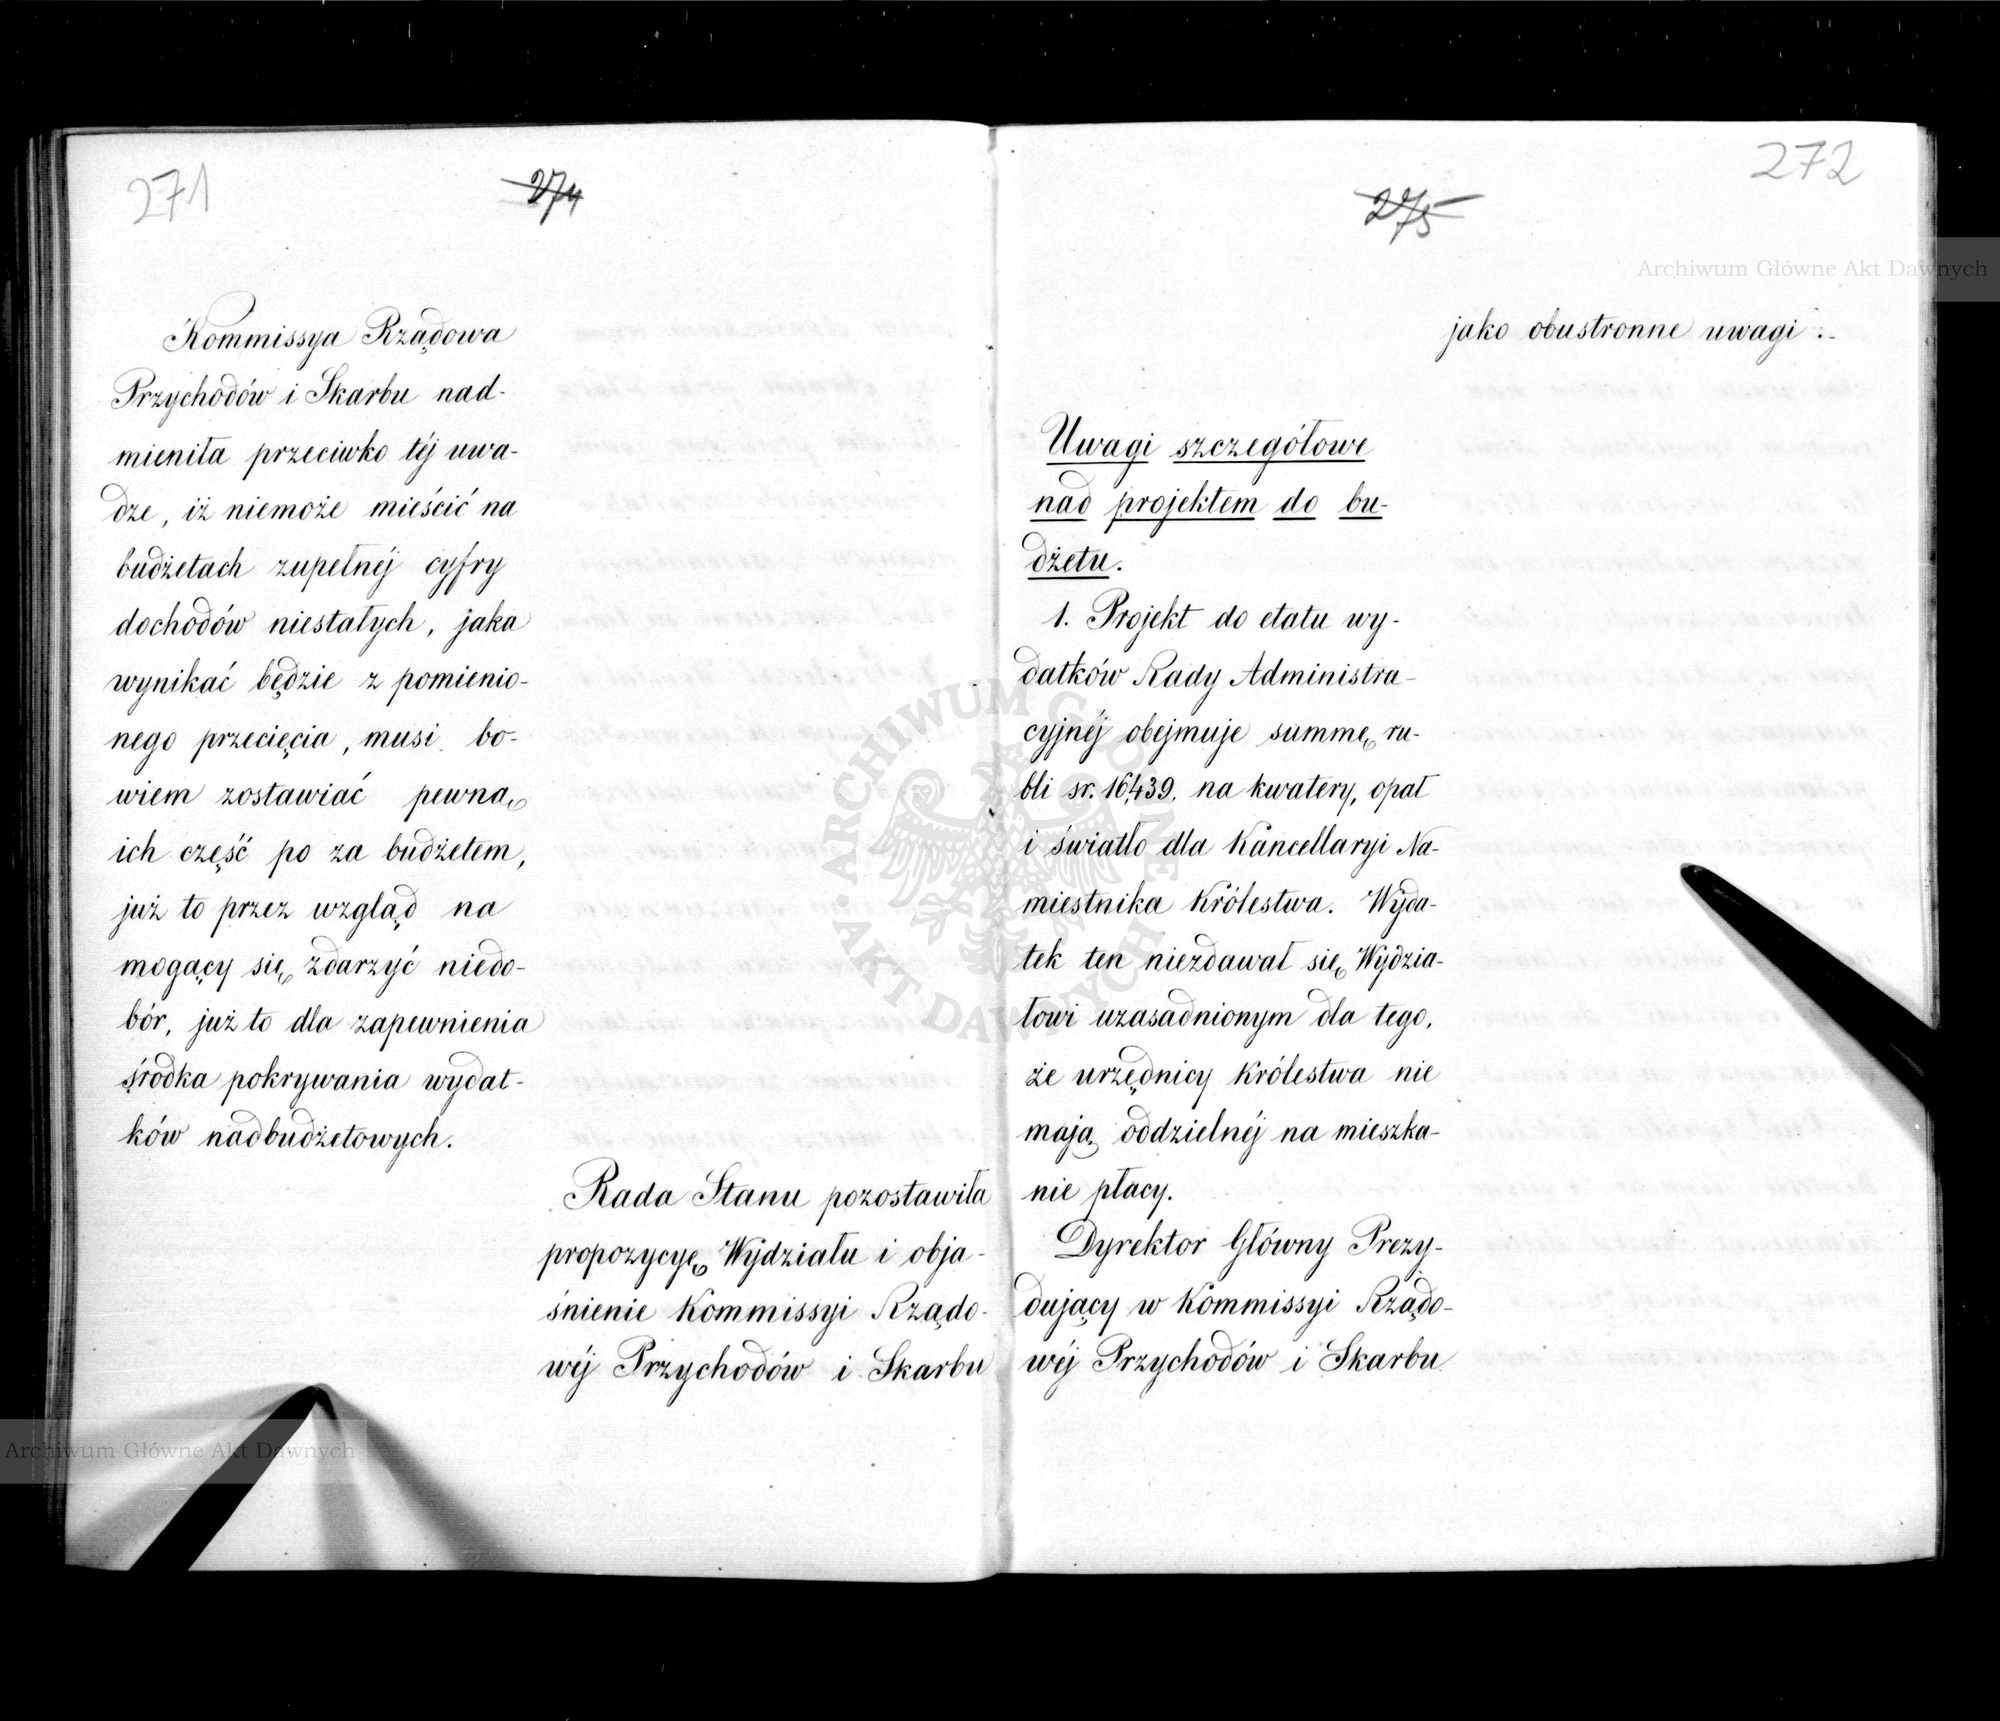 271
274
Kommissya Rządowa
Przychodów i Skarbu nad-
mieniła przeciwko téj uwa-
dze, iż niemoże mieścić na
budżetach zupełnéj cyfry
dochodów niestałych, jaka
wynikać będzie z pomienio-
nego przecięcia, musi bo-
wiem zostawiać pewną
ich część po za budżetem,
już to przez wzgląd na
mogący się zdarzyć niedo-
bór, już to dla zapewnienia
środka pokrywania wydat-
ków nadbudżetowych.
Rada Stanu pozostawiła
propozycyę Wydziału i obja-
śnienie Kommissyi Rządo-
wéj Przychodów i Skarbu
272
275
jako obustronne uwagi :.
Uwagi szczegółowe
nad projektem do bu-
dżetu.
1. Projekt do etatu wy-
datków Rady Administra-
cyjnéj obejmuje summę ru-
bli sr. 16,439. na kwatery, opał
i światło dla Kancellaryi Na-
miestnika Królestwa. Wyda-
tek ten niezdawał się Wydzia-
łowi uzasadnionym dla tego,
że urzędnicy Królestwa nie
mają oddzielnéj na mieszka-
nie płacy.
Dyrektor Główny Prezy-
dujący w Kommissyi Rządo-
wéj Przychodów i Skarbu
Archiwum Główne Akt Dawnych
Archiwum Główne Akt Dawnych
ARCHIWUM GŁÓWNE AKT DAWNYCH